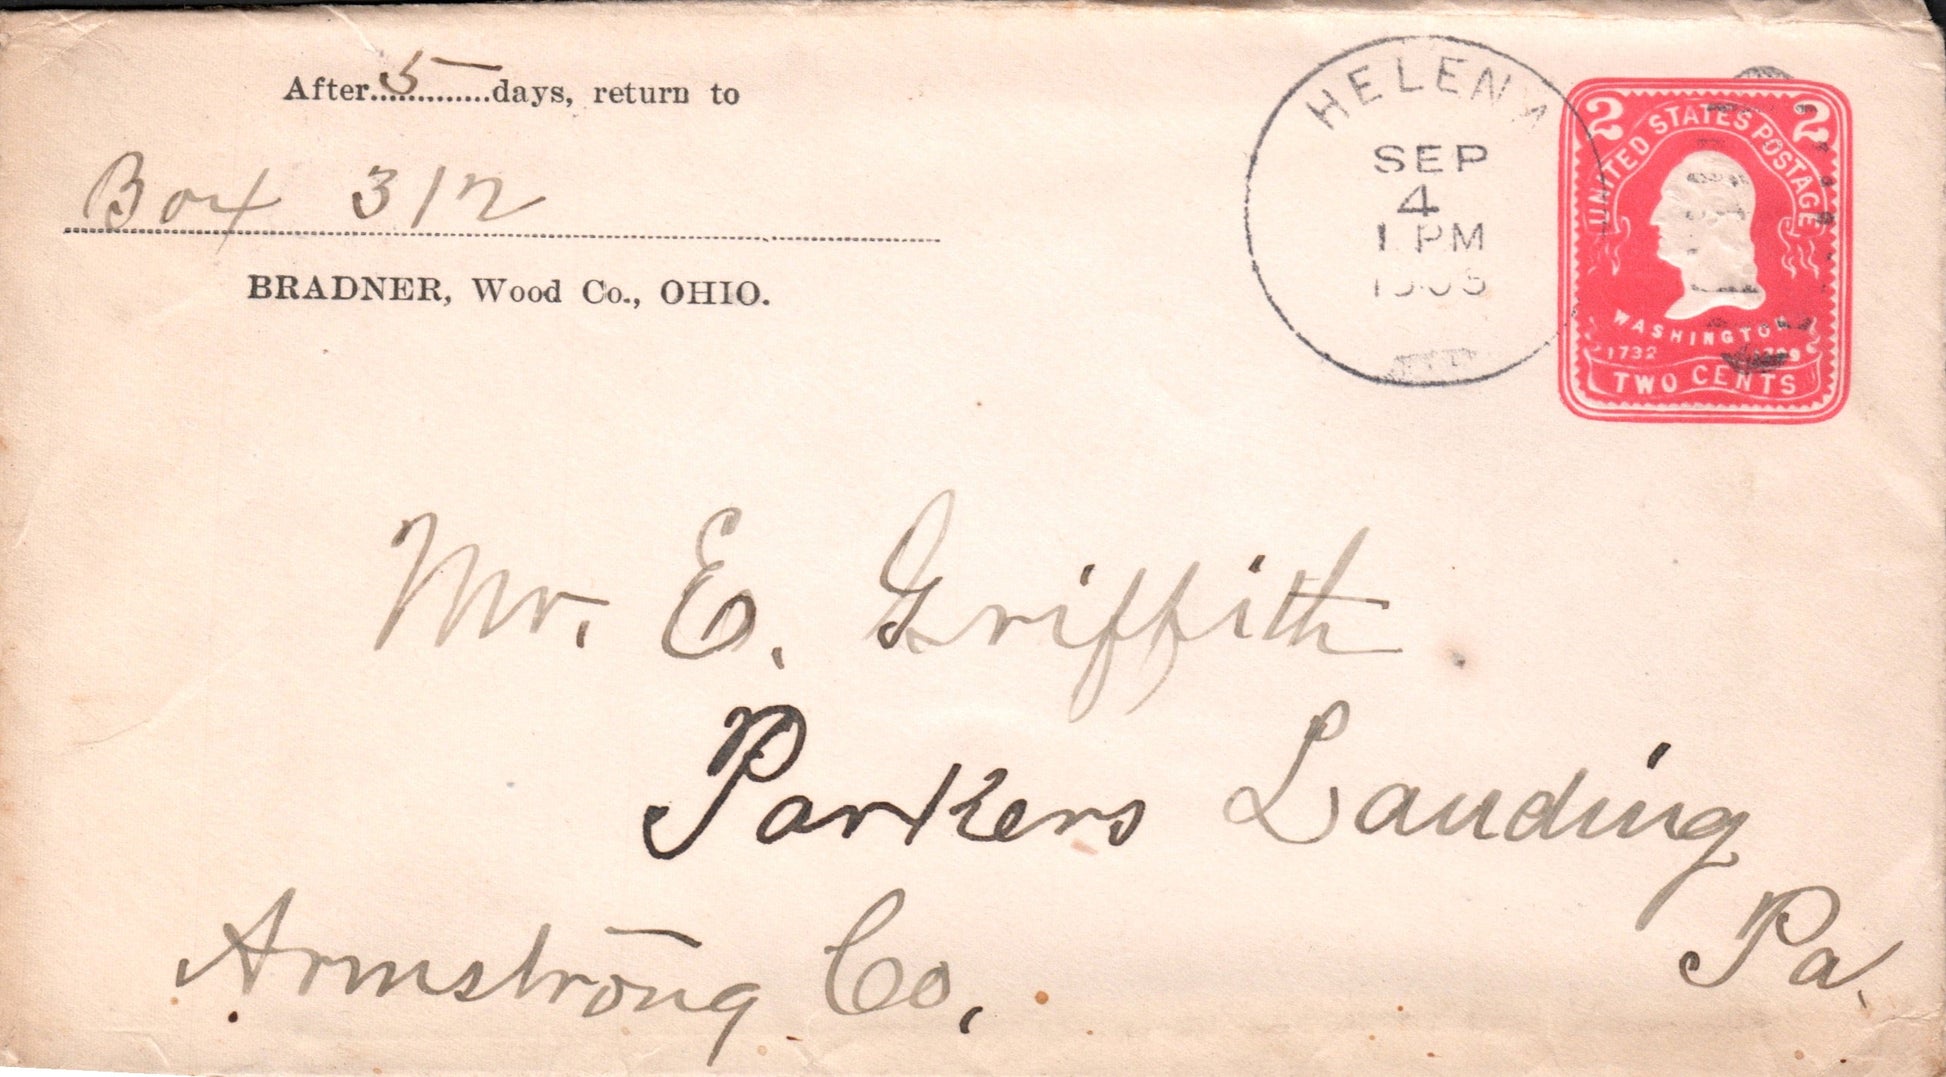 After 5 days, return to
Box 312
BRADNER, Wood Co., OHIO.
HELENA
SEP
4
1 PM
2 UNITED STATES POSTAGE 2
WASHINGTON
1732 1799
TWO CENTS
Mr. E. Griffith
Parkers Landing
Armstrong Co,
Pa.